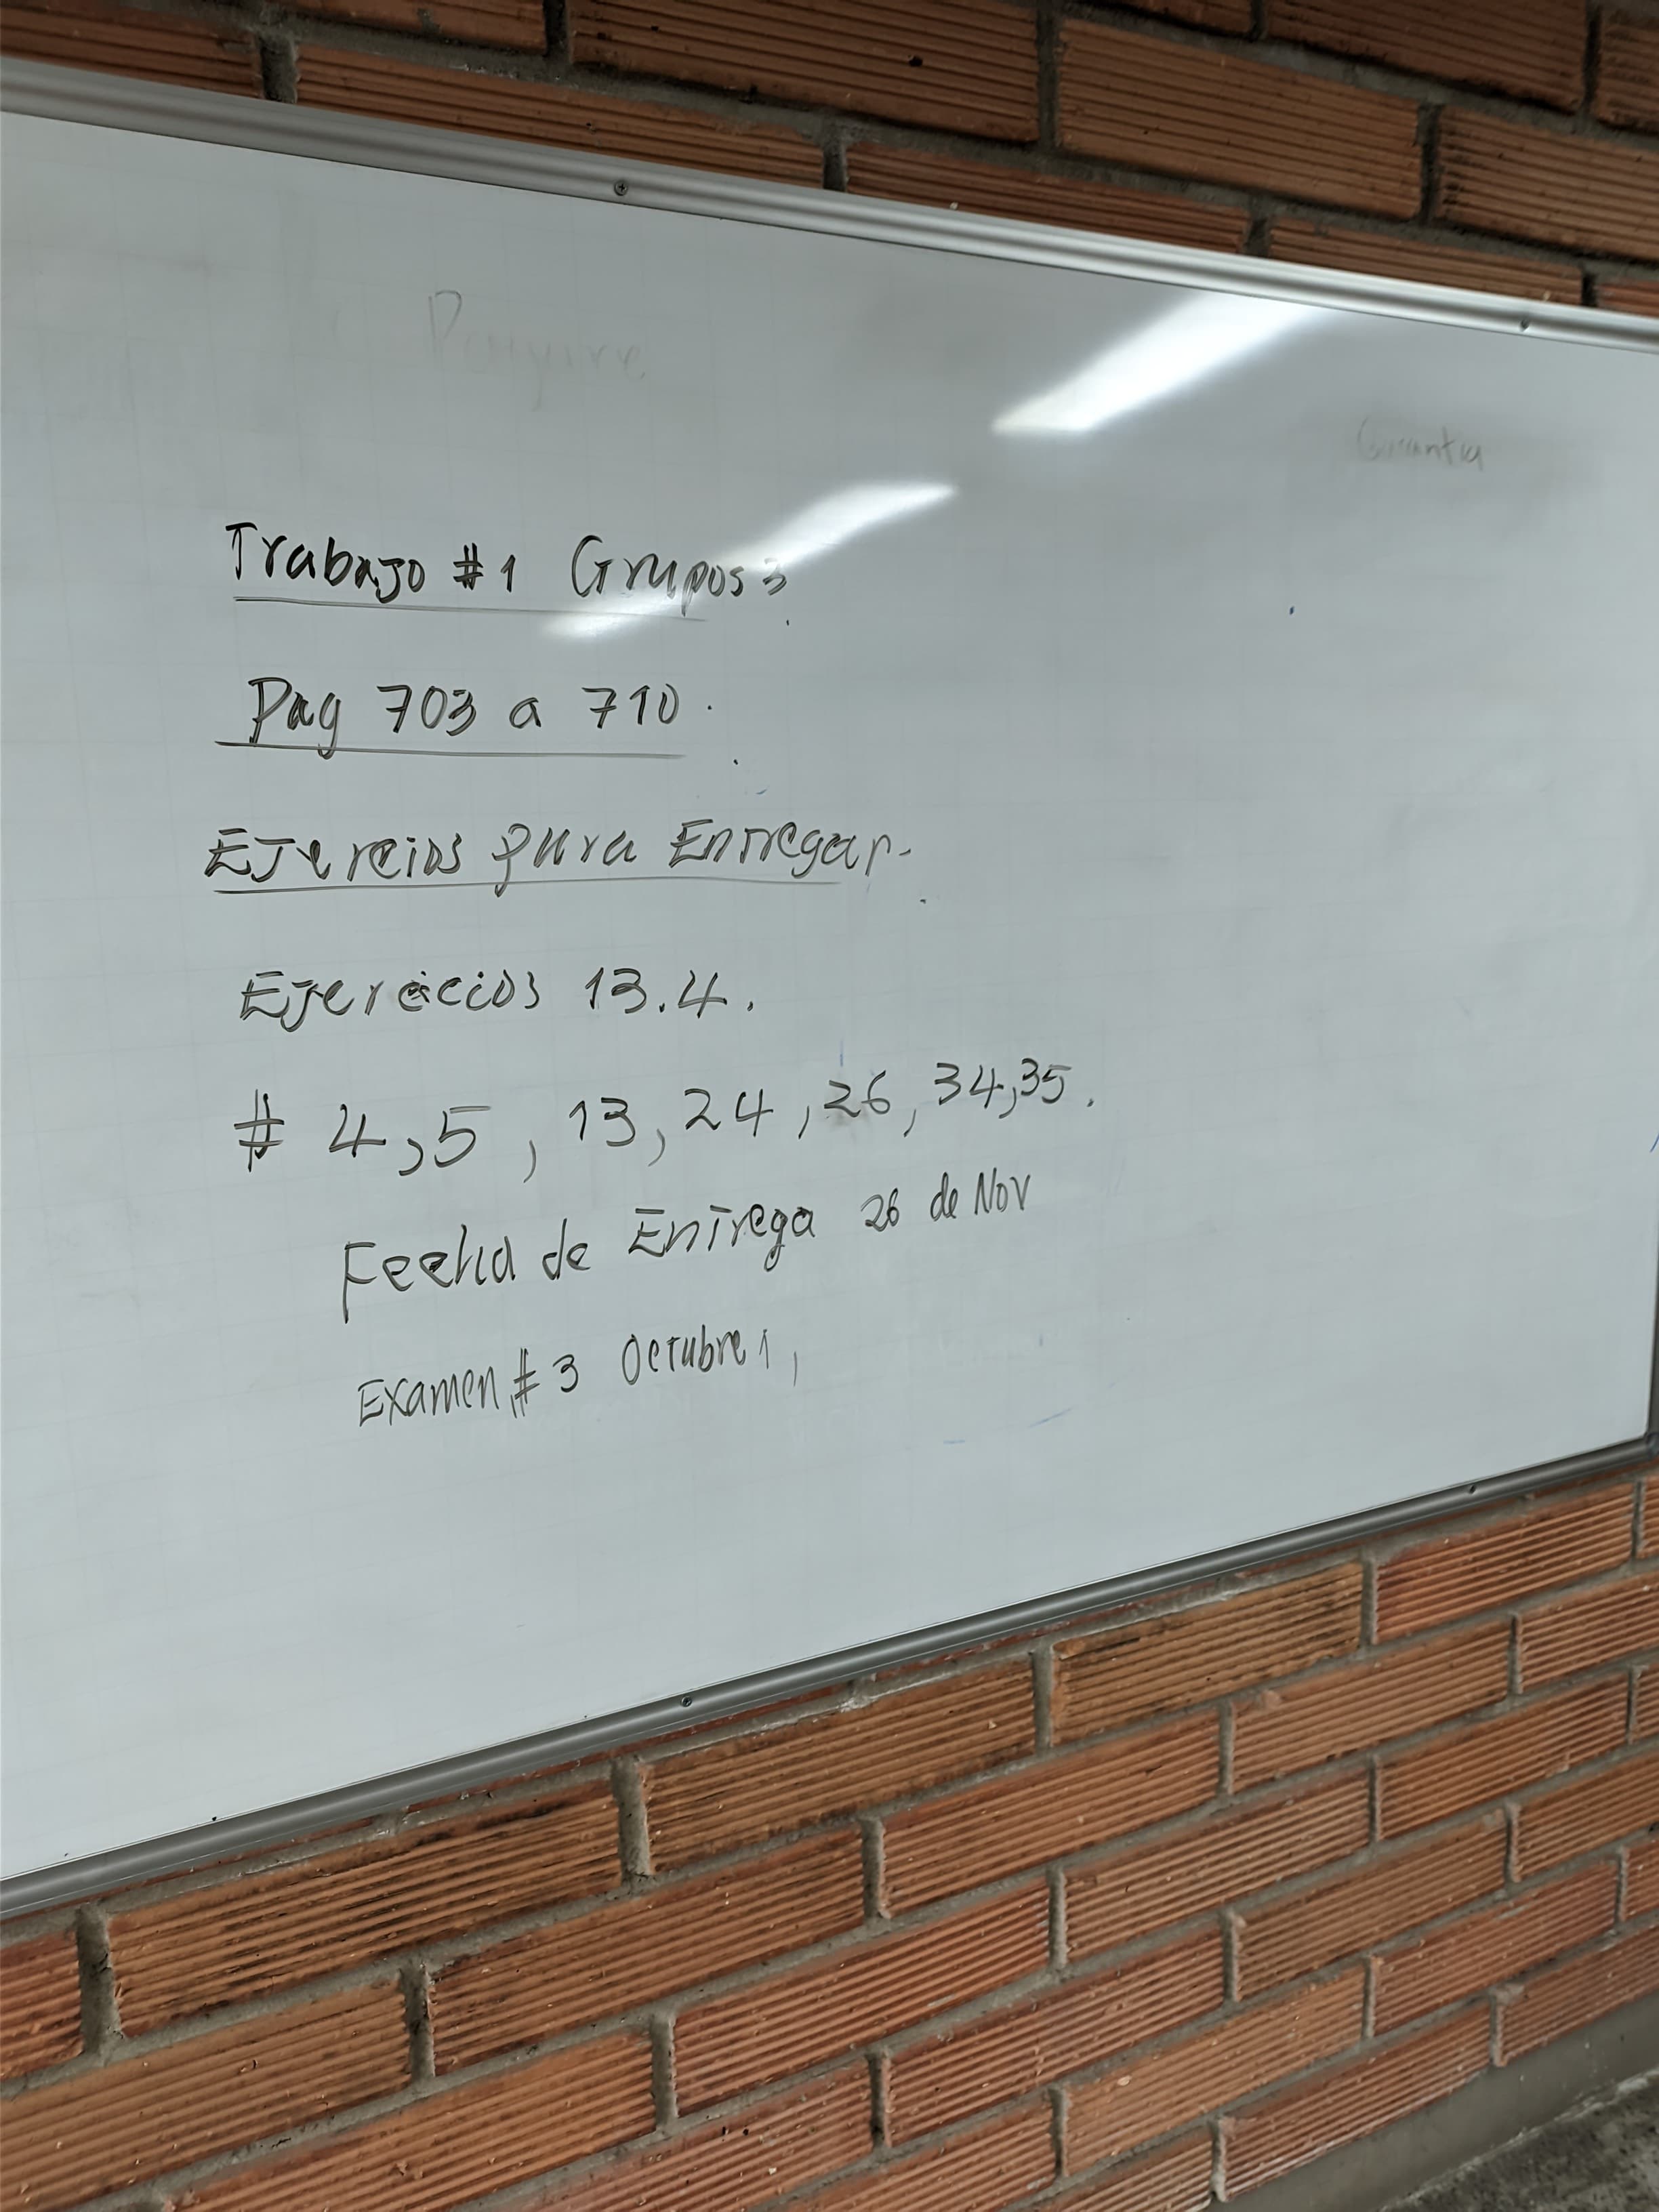 Trabajo #1 Grupos 3
Pag 703 a 710.
Ejercios para Entregar.
Ejercicios 13.4.
# 4,5, 13, 24, 26, 34, 35.
Fecha de Entrega 26 de Nov
Examen #3 Octubre 1,